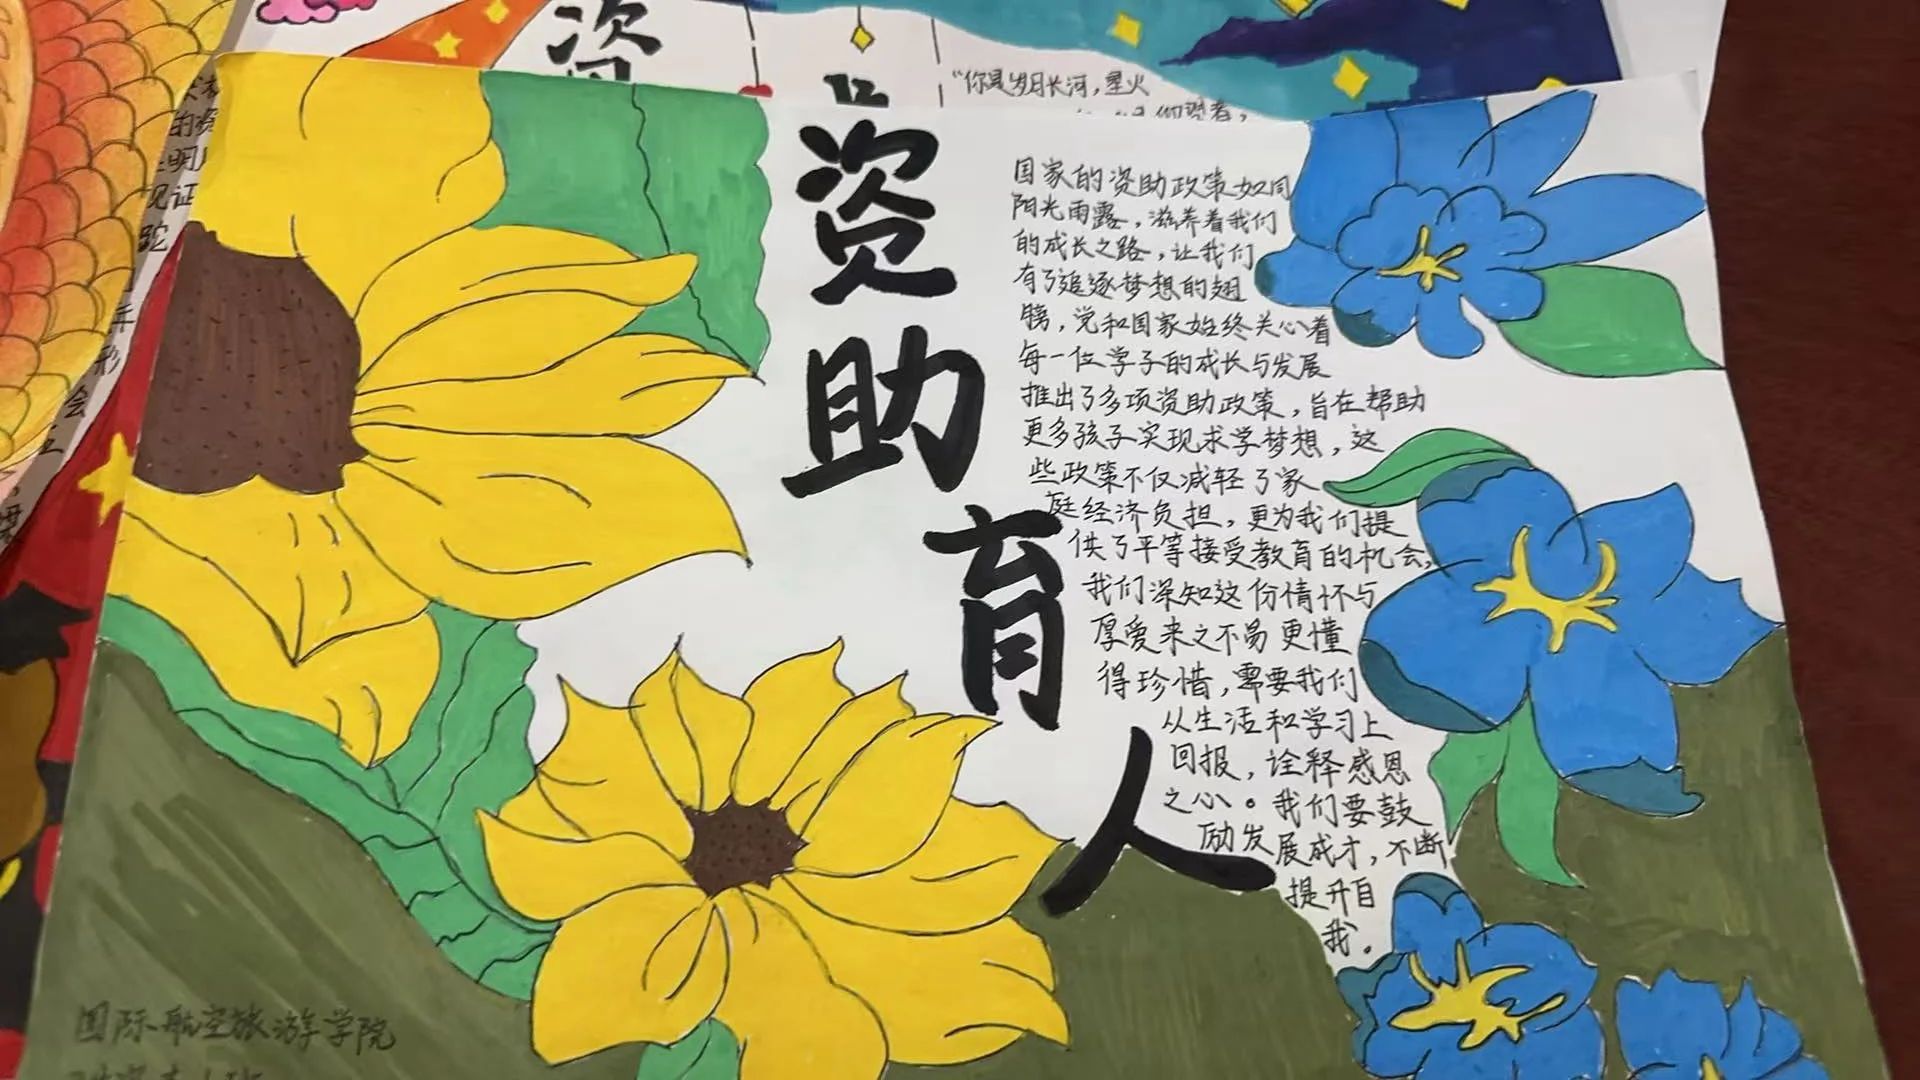 资
"你是岁月长河，星火
资
助
育
人
国家的资助政策如同
阳光雨露，滋养着我们
的成长之路，让我们
有了追逐梦想的翅
膀，党和国家始终关心着
每一位学子的成长与发展
推出了多项资助政策，旨在帮助
更多孩子实现求学梦想，这
些政策不仅减轻了家
庭经济负担，更为我们提
供了平等接受教育的机会，
我们深知这份情怀与
厚爱来之不易更懂
得珍惜，需要我们
从生活和学习上
回报，诠释感恩
之心。我们要鼓
励发展成才，不断
提升自
我。
国际航空旅游学院